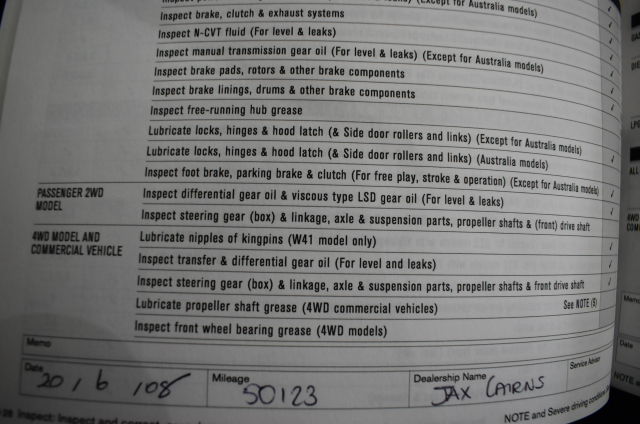 (Except for Australia models)
Inspect brake, clutch & exhaust systems
Inspect N-CVT fluid (For level & leaks)
Inspect manual transmission gear oil (For level & leaks) (Except for Australia models)
Inspect brake pads, rotors & other brake components
Inspect brake linings, drums & other brake components
Inspect free-running hub grease
Lubricate locks, hinges & hood latch (& Side door rollers and links) (Except for Australia models)
Lubricate locks, hinges & hood latch (& Side door rollers and links) (Australia models)
Inspect foot brake, parking brake & clutch (For free play, stroke & operation) (Except for Australia models)
PASSENGER 2WD MODEL
Inspect differential gear oil & viscous type LSD gear oil (For level & leaks)
Inspect steering gear (box) & linkage, axle & suspension parts, propeller shafts & (front) drive shaft
4WD MODEL AND COMMERCIAL VEHICLE
Lubricate nipples of kingpins (W41 model only)
Inspect transfer & differential gear oil (For level and leaks)
Inspect steering gear (box) & linkage, axle & suspension parts, propeller shafts & front drive shaft
Lubricate propeller shaft grease (4WD commercial vehicles) See NOTE (9)
Inspect front wheel bearing grease (4WD models)
Memo
Date 20/6/08 Mileage 50123 Dealership Name JAX CAIRNS Service Advisor
NOTE and Severe driving